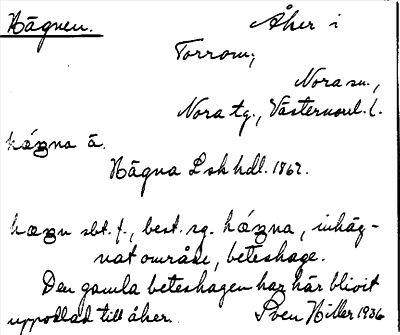 Hägnen. Åker i
Torrom,
Nora sn.,
Nora tg., Västernorrl. l.
hǽgna ä.
Hägna Lskhdl. 1867.
hægn sbt. f., best. sg. hǽgna, inhäg-
nat område, beteshage.
Den gamla beteshagen har här blivit
uppodlad till åker. Sven Hiller 1936